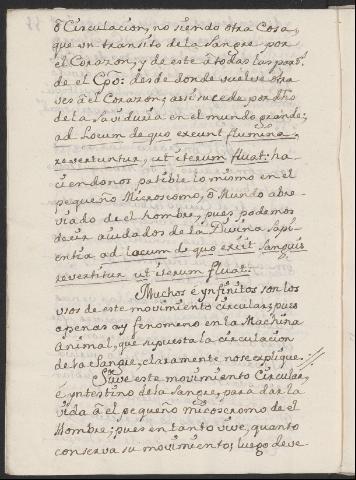 ô Circulacion, no siendo otra Cosa,
que un transito de la Sangre por
el Corazon, y de este â todas las part.s
de el Cpô: desde donde vuelve otra
ves â el Corazon; assi sucede por dho
de la Saviduria en el mundo grande;
ad Locum de quo exeunt flumina,
revertuntur, ut iterum fluat: ha
ciendonos patible lo mismo en el
pequeño Microscomo, ô Mundo abre-
viado de el hombre, pues podemos
decir aiudados de la Divina Sapi-
entia ad Locum de quo exiit Sanguis
revertitur ut iterum fluat.
Muchos é ynfinitos son los
usos de este movimiento circular; pues
apenas ay fenomeno en la Machina
Animal, que supuesta la circulacion
de la Sangre, claramente no se explique.
Sirve este movimiento Circular,
é yntestino de la Sangre, para dar la
vida â el pequeño micoscromo de el
Hombre; pues en tanto vive, quanto
conserva su movimiento; luego deve